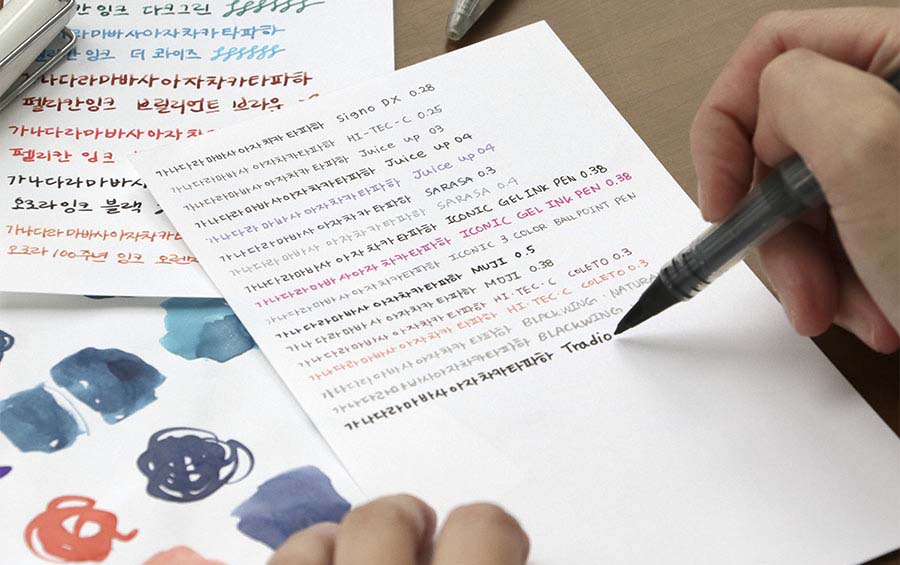 잉크 다크그린
가나다라마바사아자차카타파하
펠리칸 잉크 더 콰이즈
가나다라마바사아자차카타파하
펠리칸잉크 브릴리언트 브라운
가나다라마바사아자차
펠리칸 잉크
가나다라마바사아자차
오로라잉크 블랙
가나다라마바사아자차카
오로라 100주년 잉크 오렌지
가나다라마바사아자차카타파하 Signo DX 0.28
가나다라마바사아자차카타파하 HI-TEC-C 0.25
가나다라마바사아자차카타파하 Juice up 03
가나다라마바사아자차카타파하 Juice up 04
가나다라마바사아자차카타파하 Juice up 04
가나다라마바사아자차카타파하 SARASA 0.3
가나다라마바사아자차카타파하 SARASA 0.4
가나다라마바사아자차카타파하 ICONIC GEL INK PEN 0.38
가나다라마바사아자차카타파하 ICONIC GEL INK PEN 0.38
가나다라마바사아자차카타파하 ICONIC 3 COLOR BALLPOINT PEN
가나다라마바사아자차카타파하 MUJI 0.5
가나다라마바사아자차카타파하 MUJI 0.38
가나다라마바사아자차카타파하 HI-TEC-C COLETO 0.3
가나다라마바사아자차카타파하 HI-TEC-C COLETO 0.3
가나다라마바사아자차카타파하 BLACKWING · NATURA
가나다라마바사아자차카타파하 BLACKWING
가나다라마바사아자차카타파하 Tradio